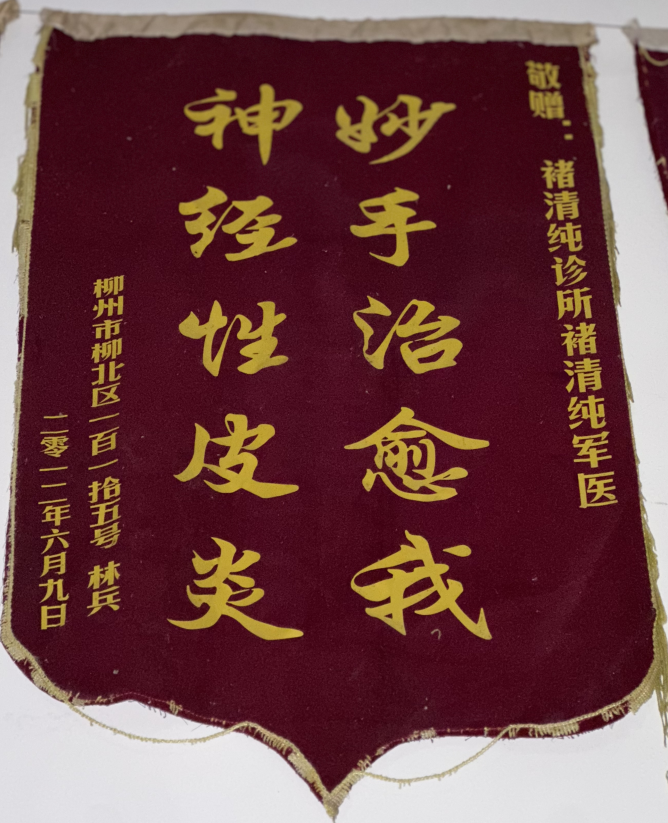 敬赠：褚清纯诊所褚清纯军医
妙手治愈我
神经性皮炎
柳州市柳北区一百一拾五号 林兵
二零一二年六月九日